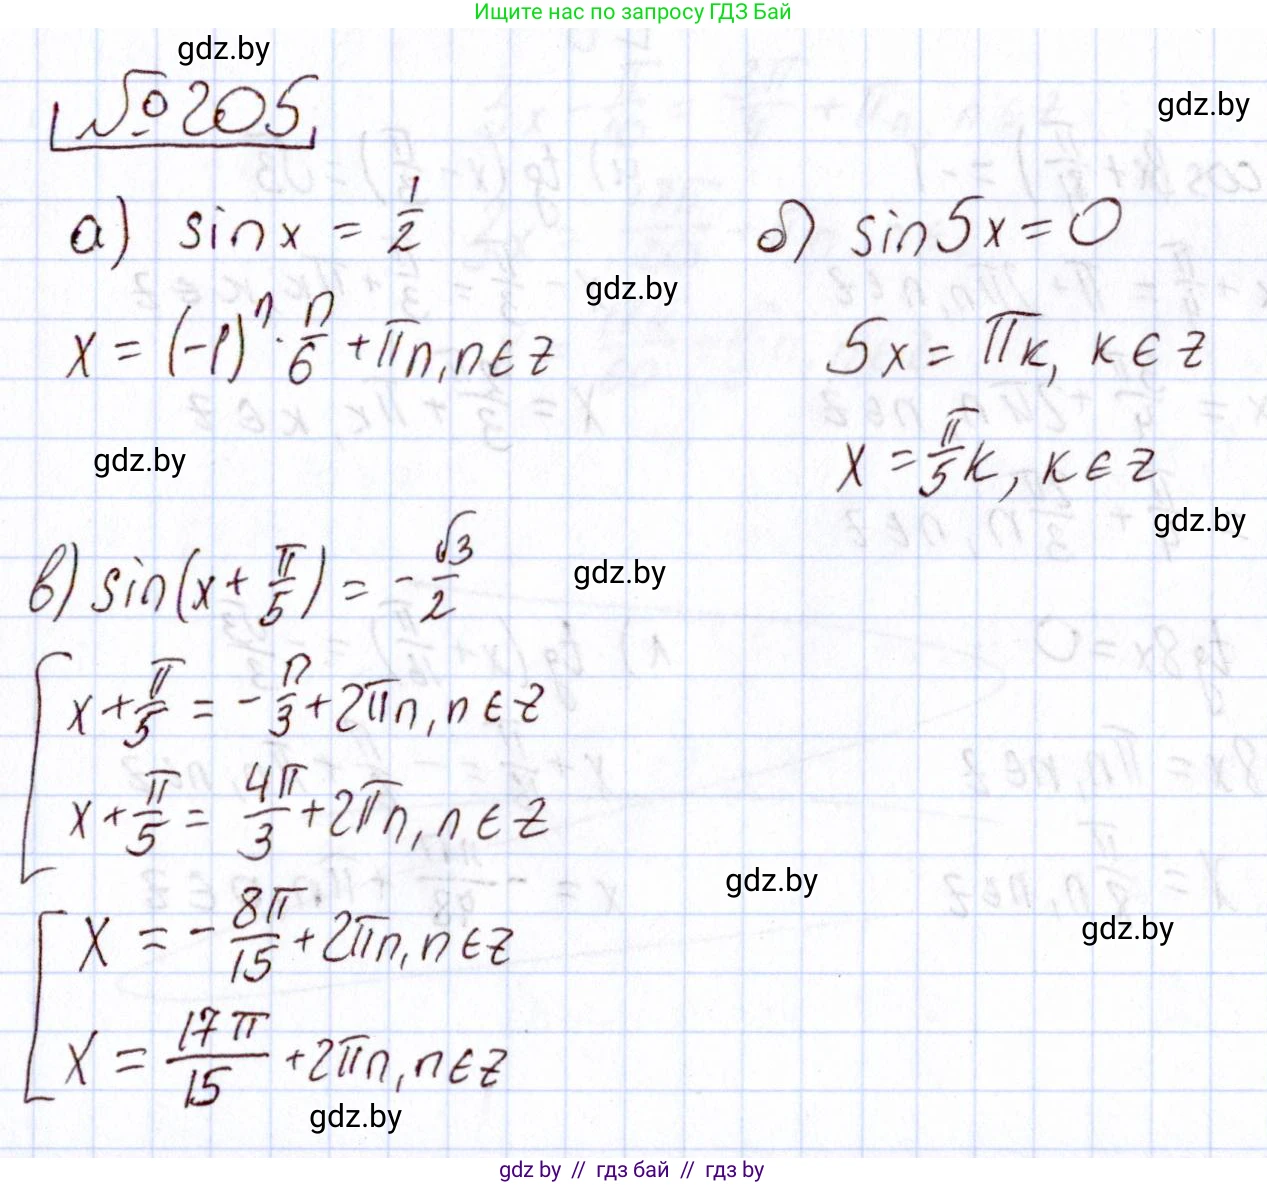 Ищите нас по запросу ГДЗ Бай
gdz.by
№205
gdz.by
а) sin x = 1/2
б) sin 5x = 0
gdz.by
x = (-1)ⁿ · π/6 + πn, n ∈ z
5x = πk, k ∈ z
gdz.by
x = π/5 k, k ∈ z
gdz.by
в) sin(x + π/5) = -√3/2
gdz.by
x + π/5 = -π/3 + 2πn, n ∈ z
x + π/5 = 4π/3 + 2πn, n ∈ z
gdz.by
x = -8π/15 + 2πn, n ∈ z
gdz.by
x = 17π/15 + 2πn, n ∈ z
gdz.by
gdz by // гдз бай // гдз by